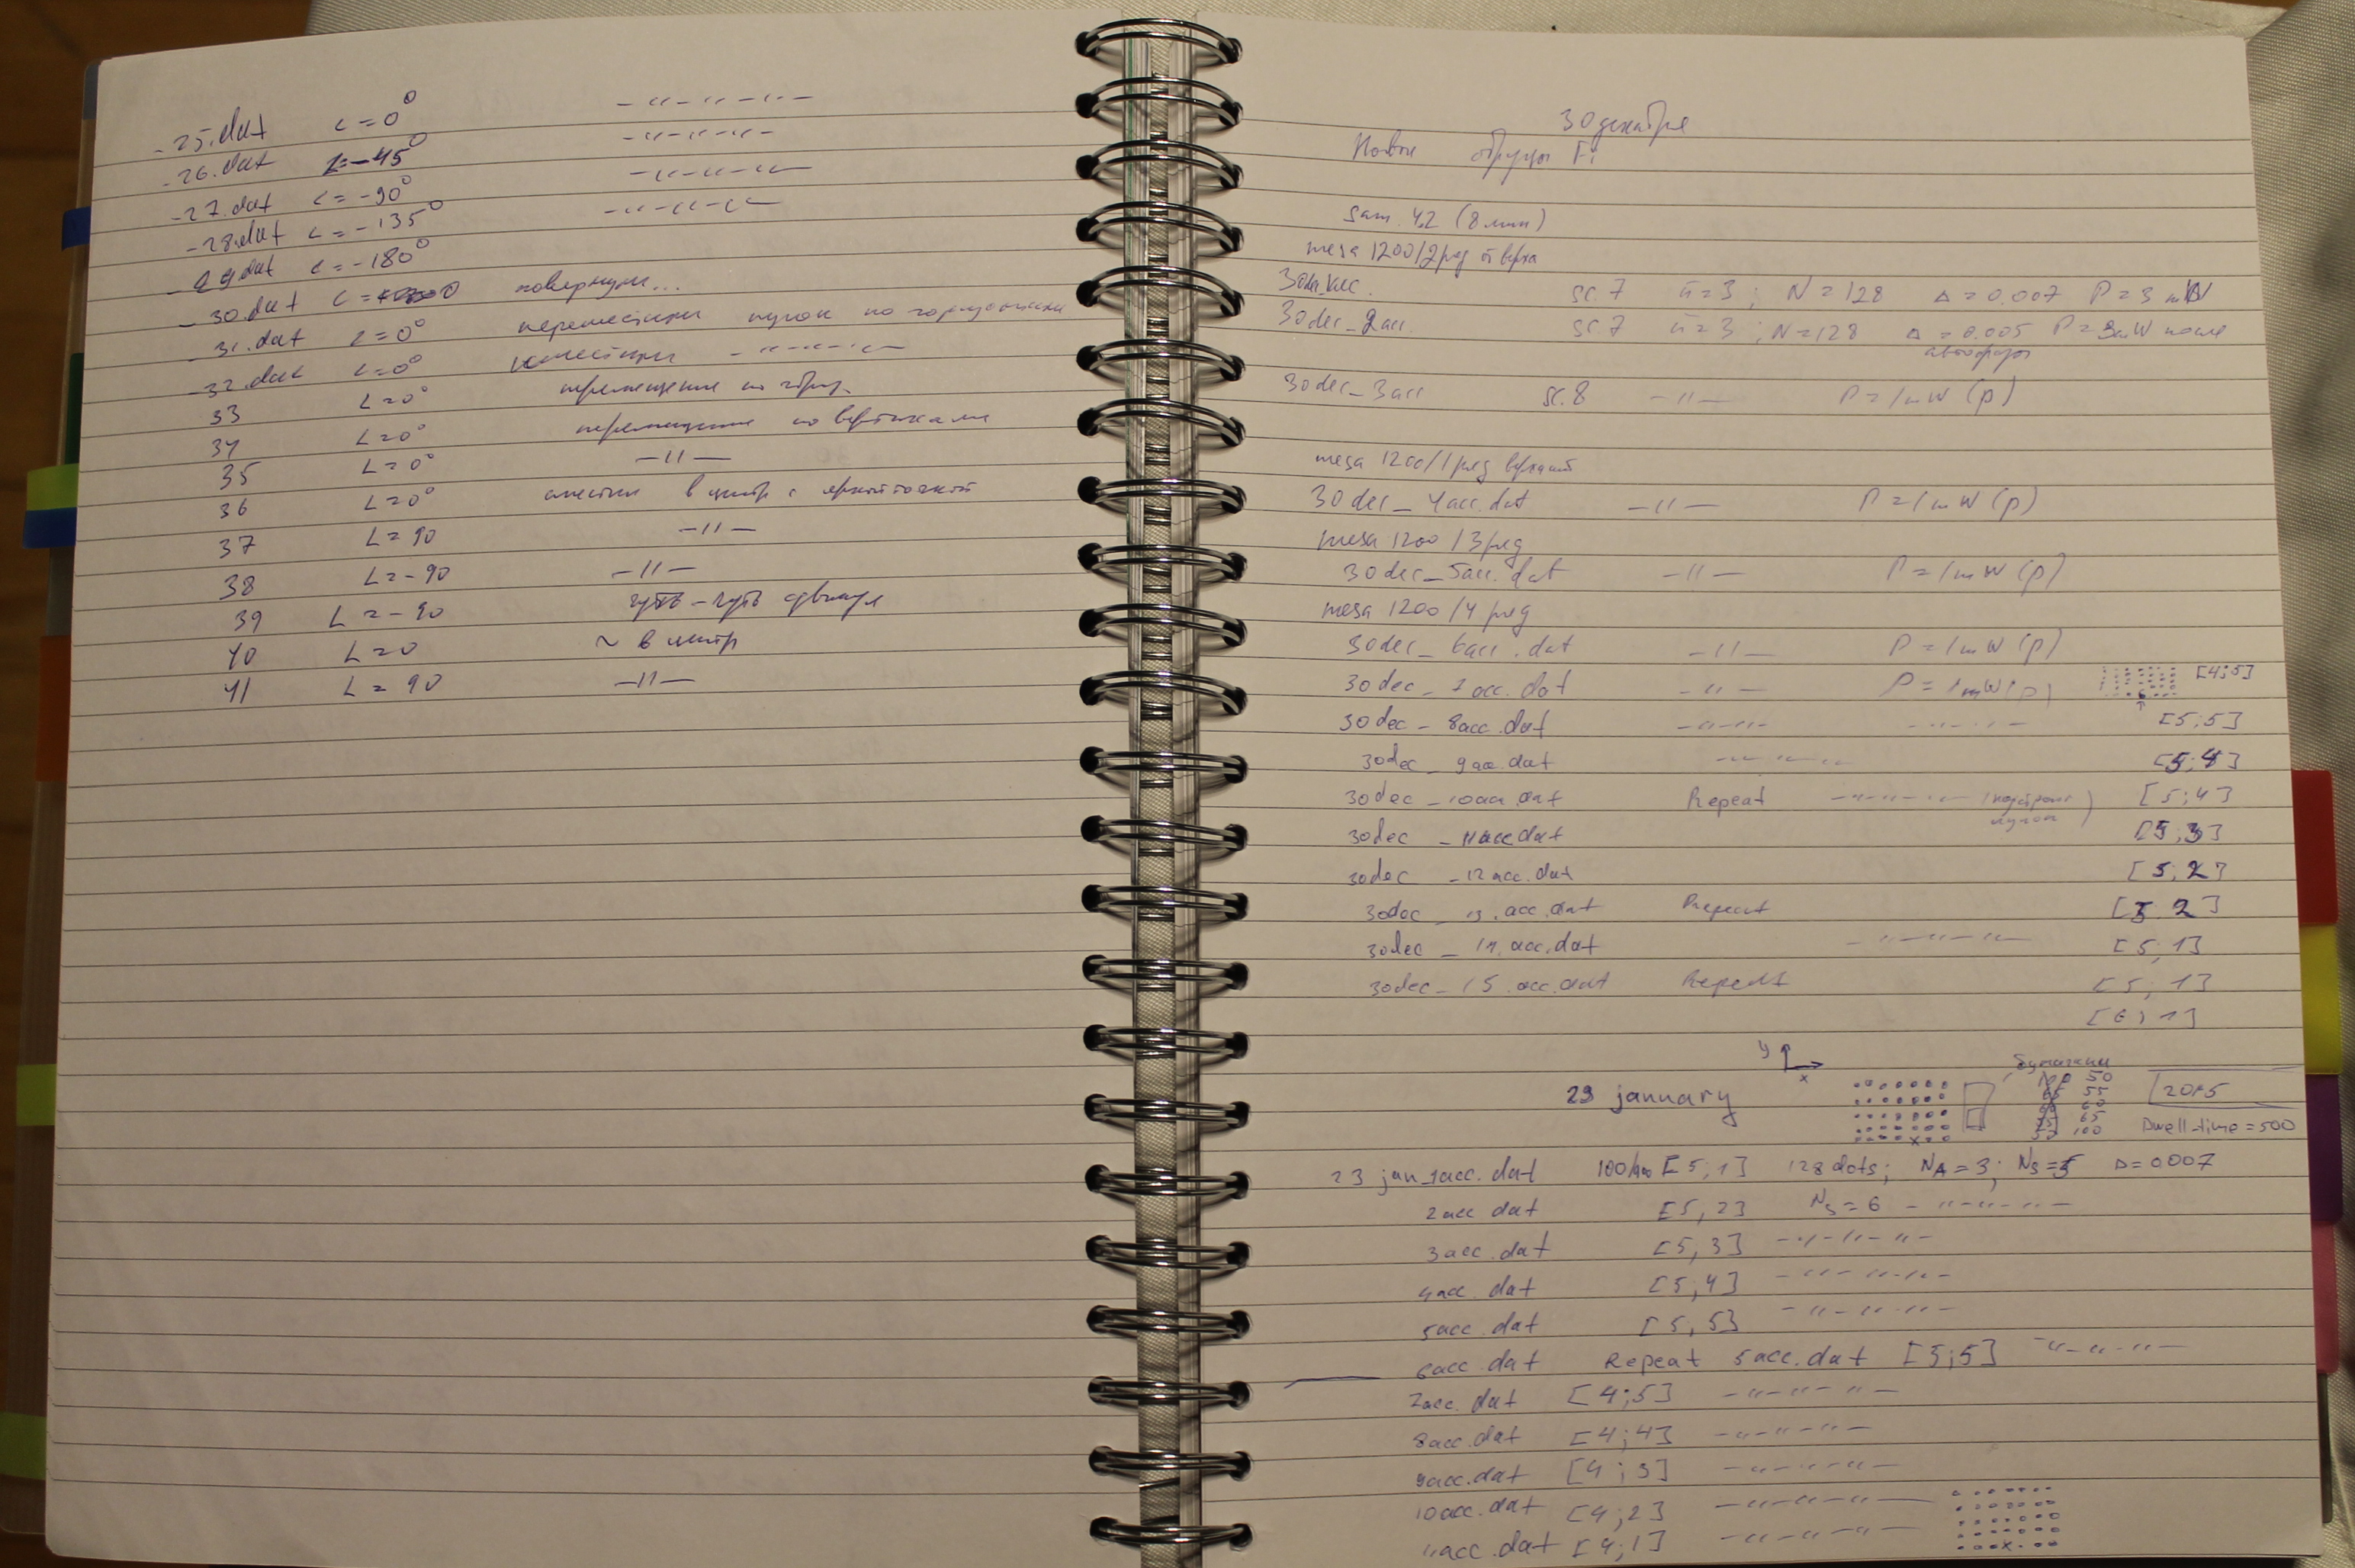 -25.dat L=0° -〃-〃-〃-
-26.dat L=-45° -〃-〃-〃-
-27.dat L=-90° -〃-〃-〃-
-28.dat L=-135° -〃-〃-〃-
-29.dat L=-180°
-30.dat L=0 повернули...
-31.dat L=0° переместили пучок по горизонтали
-32.dat L=0° -〃-〃-
33 L=0° перемещение по гориз.
34 L=0° перемещение по вертикали
35 L=0° -〃-
36 L=0° в центр с яркой точкой
37 L=90 -〃-
38 L=-90 -〃-
39 L=-90 чуть-чуть сдвинул
40 L=0 ~ в центр
41 L=90 -〃-
30 декабря
Новые образцы Fi
Sam. 4.2 (8 мин)
mesa 1200/2 ряд сверху
sc.7 n=3; N=128 Δ=0.007 P=3 mW
30dec_2acc. sc.7 n=3; N=128 Δ=0.005 P=3mW после
30dec_3acc sc.8 -〃- P=1mW (p)
mesa 1200/1 ряд верхний
30dec_4acc.dat -〃- P=1mW (p)
mesa 1200/3 ряд
30dec_5acc.dat -〃- P=1mW (p)
mesa 1200/4 ряд
30dec_6acc.dat -〃- P=1mW (p)
30dec_7acc.dat -〃- P=1mW (p) [4;5]
30dec_8acc.dat -〃-〃- -〃-〃- [5;5]
30dec_9acc.dat -〃-〃-〃- [5;4]
30dec_10acc.dat Repeat -〃-〃-〃- [5;4]
30dec_11acc.dat [5;3]
30dec_12acc.dat [5;2]
30dec_13.acc.dat Repeat [5;2]
30dec_14.acc.dat -〃-〃-〃- [5,1]
30dec_15.acc.dat Repeat [5;1]
[6;1]
y
x
бумажки
50
55
60
65
100
29 january
2015
Dwell-time=500
23 jan_1acc.dat [5;1] 128 dots; NA=3; NS=5 Δ=0.007
2acc dat [5,2] NS=6 -〃-〃-〃-
3acc.dat [5,3] -〃-〃-〃-
4acc.dat [5;4] -〃-〃-〃-
5acc.dat [5,5] -〃-〃-〃-
6acc.dat Repeat 5acc.dat [5;5] -〃-〃-〃-
7acc.dat [4;5] -〃-〃-〃-
8acc.dat [4;4] -〃-〃-〃-
9acc.dat [4;3] -〃-〃-〃-
10acc.dat [4;2] -〃-〃-〃-
11acc.dat [4;1] -〃-〃-〃-